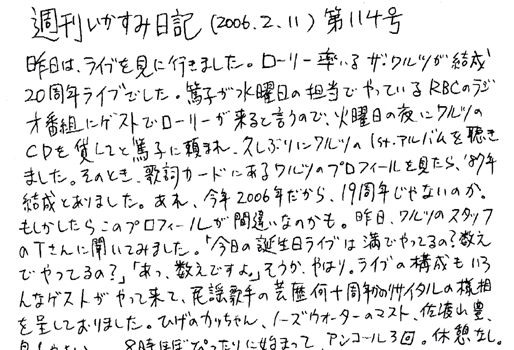 週刊いかすみ日記 (2006.2.11) 第114号
昨日は、ライブを見に行きました。ローリー率いるザ・ワルツが結成
20周年ライブでした。篤子が水曜日の担当でやっているRBCのラジ
オ番組にゲストでローリーが来ると言うので、火曜日の夜にワルツの
CDを貸してと篤子に頼まれ、久しぶりにワルツの1st.アルバムを聴き
ました。そのとき、歌詞カードにあるワルツのプロフィールを見たら、'87年
結成とありました。あれ、今年2006年だから、19周年じゃないのか。
もしかしたらこのプロフィールが間違いなのかも。昨日、ワルツのスタッフ
のTさんに聞いてみました。「今日の誕生日ライブは満でやってるの?数え
でやってるの?」「あっ、数えですよ。」そうか、やはり。ライブの構成もいろ
んなゲストがやって来て、民謡歌手の芸歴何十周年かのリサイタルの様相
を呈しておりました。ひげのかっちゃん、ノーズウォーターのマスト、佐渡山豊、
8時ほぼぴったりに始まって、アンコール3回。休憩なし。